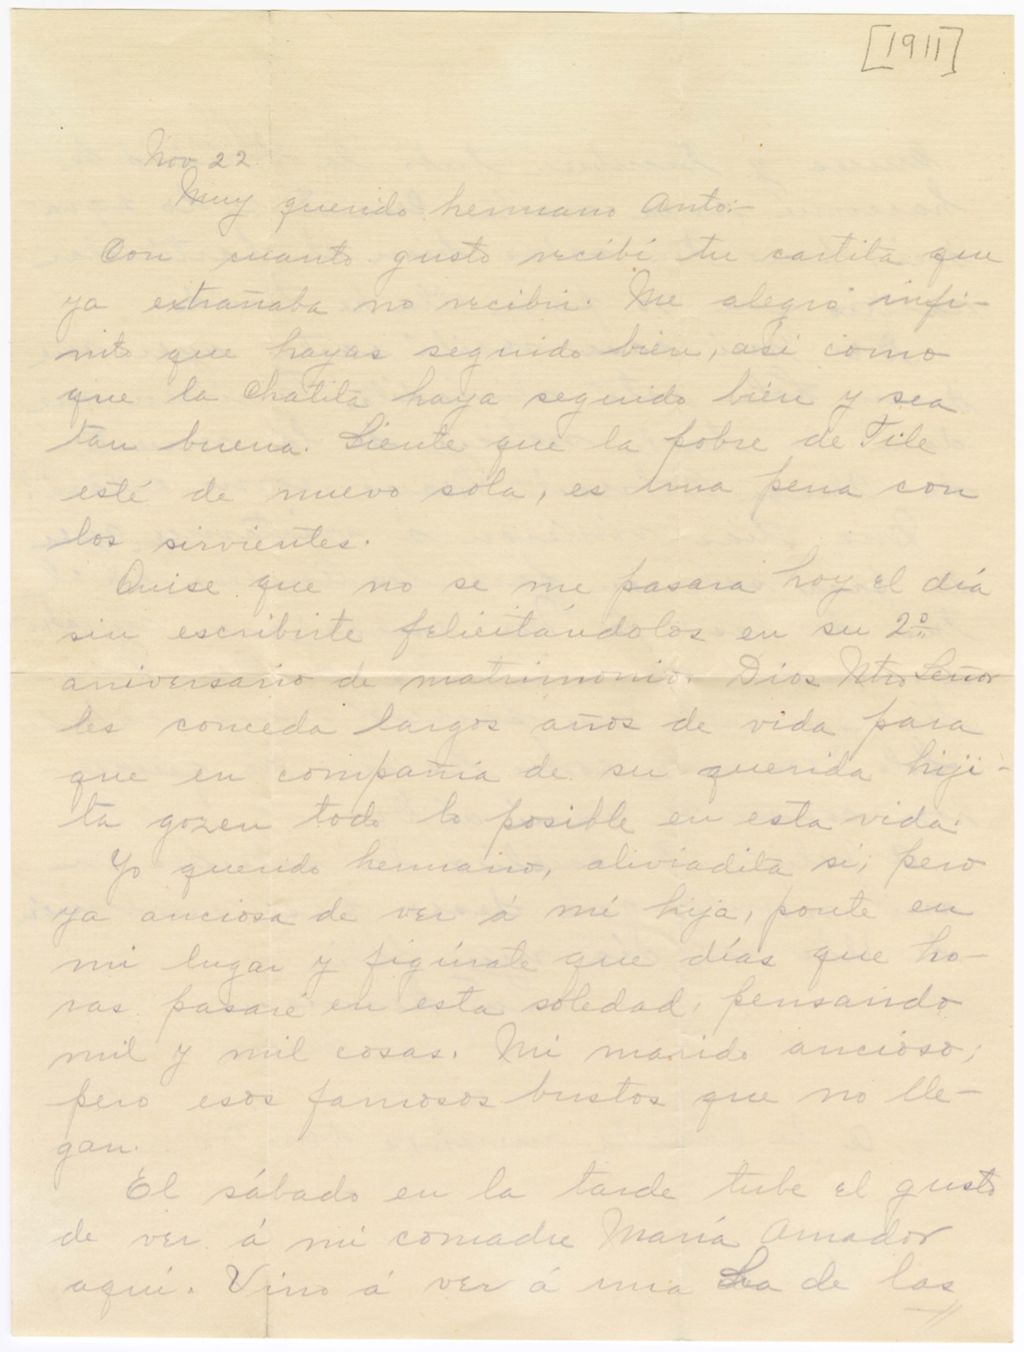 [1911]
Nov 22
Muy querido hermano Anto:-
Con cuanto gusto recibí tu cartita que
ya extrañaba no recibir. Me alegró infi-
nito que hayas seguido bien, así como
que la Chatita haya seguido bien y sea
tan buena. Siente que la pobre de Tile
esté de nuevo sola, es una pena con
los sirvientes.
Quise que no se me pasara hoy el día
sin escribirte felicitándolos en su 2º
aniversario de matrimonio. Dios Ntro Señor
les conceda largos años de vida para
que en compañía de su querida hiji-
ta gozen todo lo posible en esta vida.
Yo querido hermano, aliviadita sí, pero
ya anciosa de ver á mi hija, ponte en
mi lugar y figúrate que días que ho-
ras pasaré en esta soledad, pensando
mil y mil cosas. Mi marido ancioso;
pero esos famosos bustos que no lle-
gan.
El sábado en la tarde tube el gusto
de ver á mi comadre María Amador
aquí. Vino á ver á una Sra de las